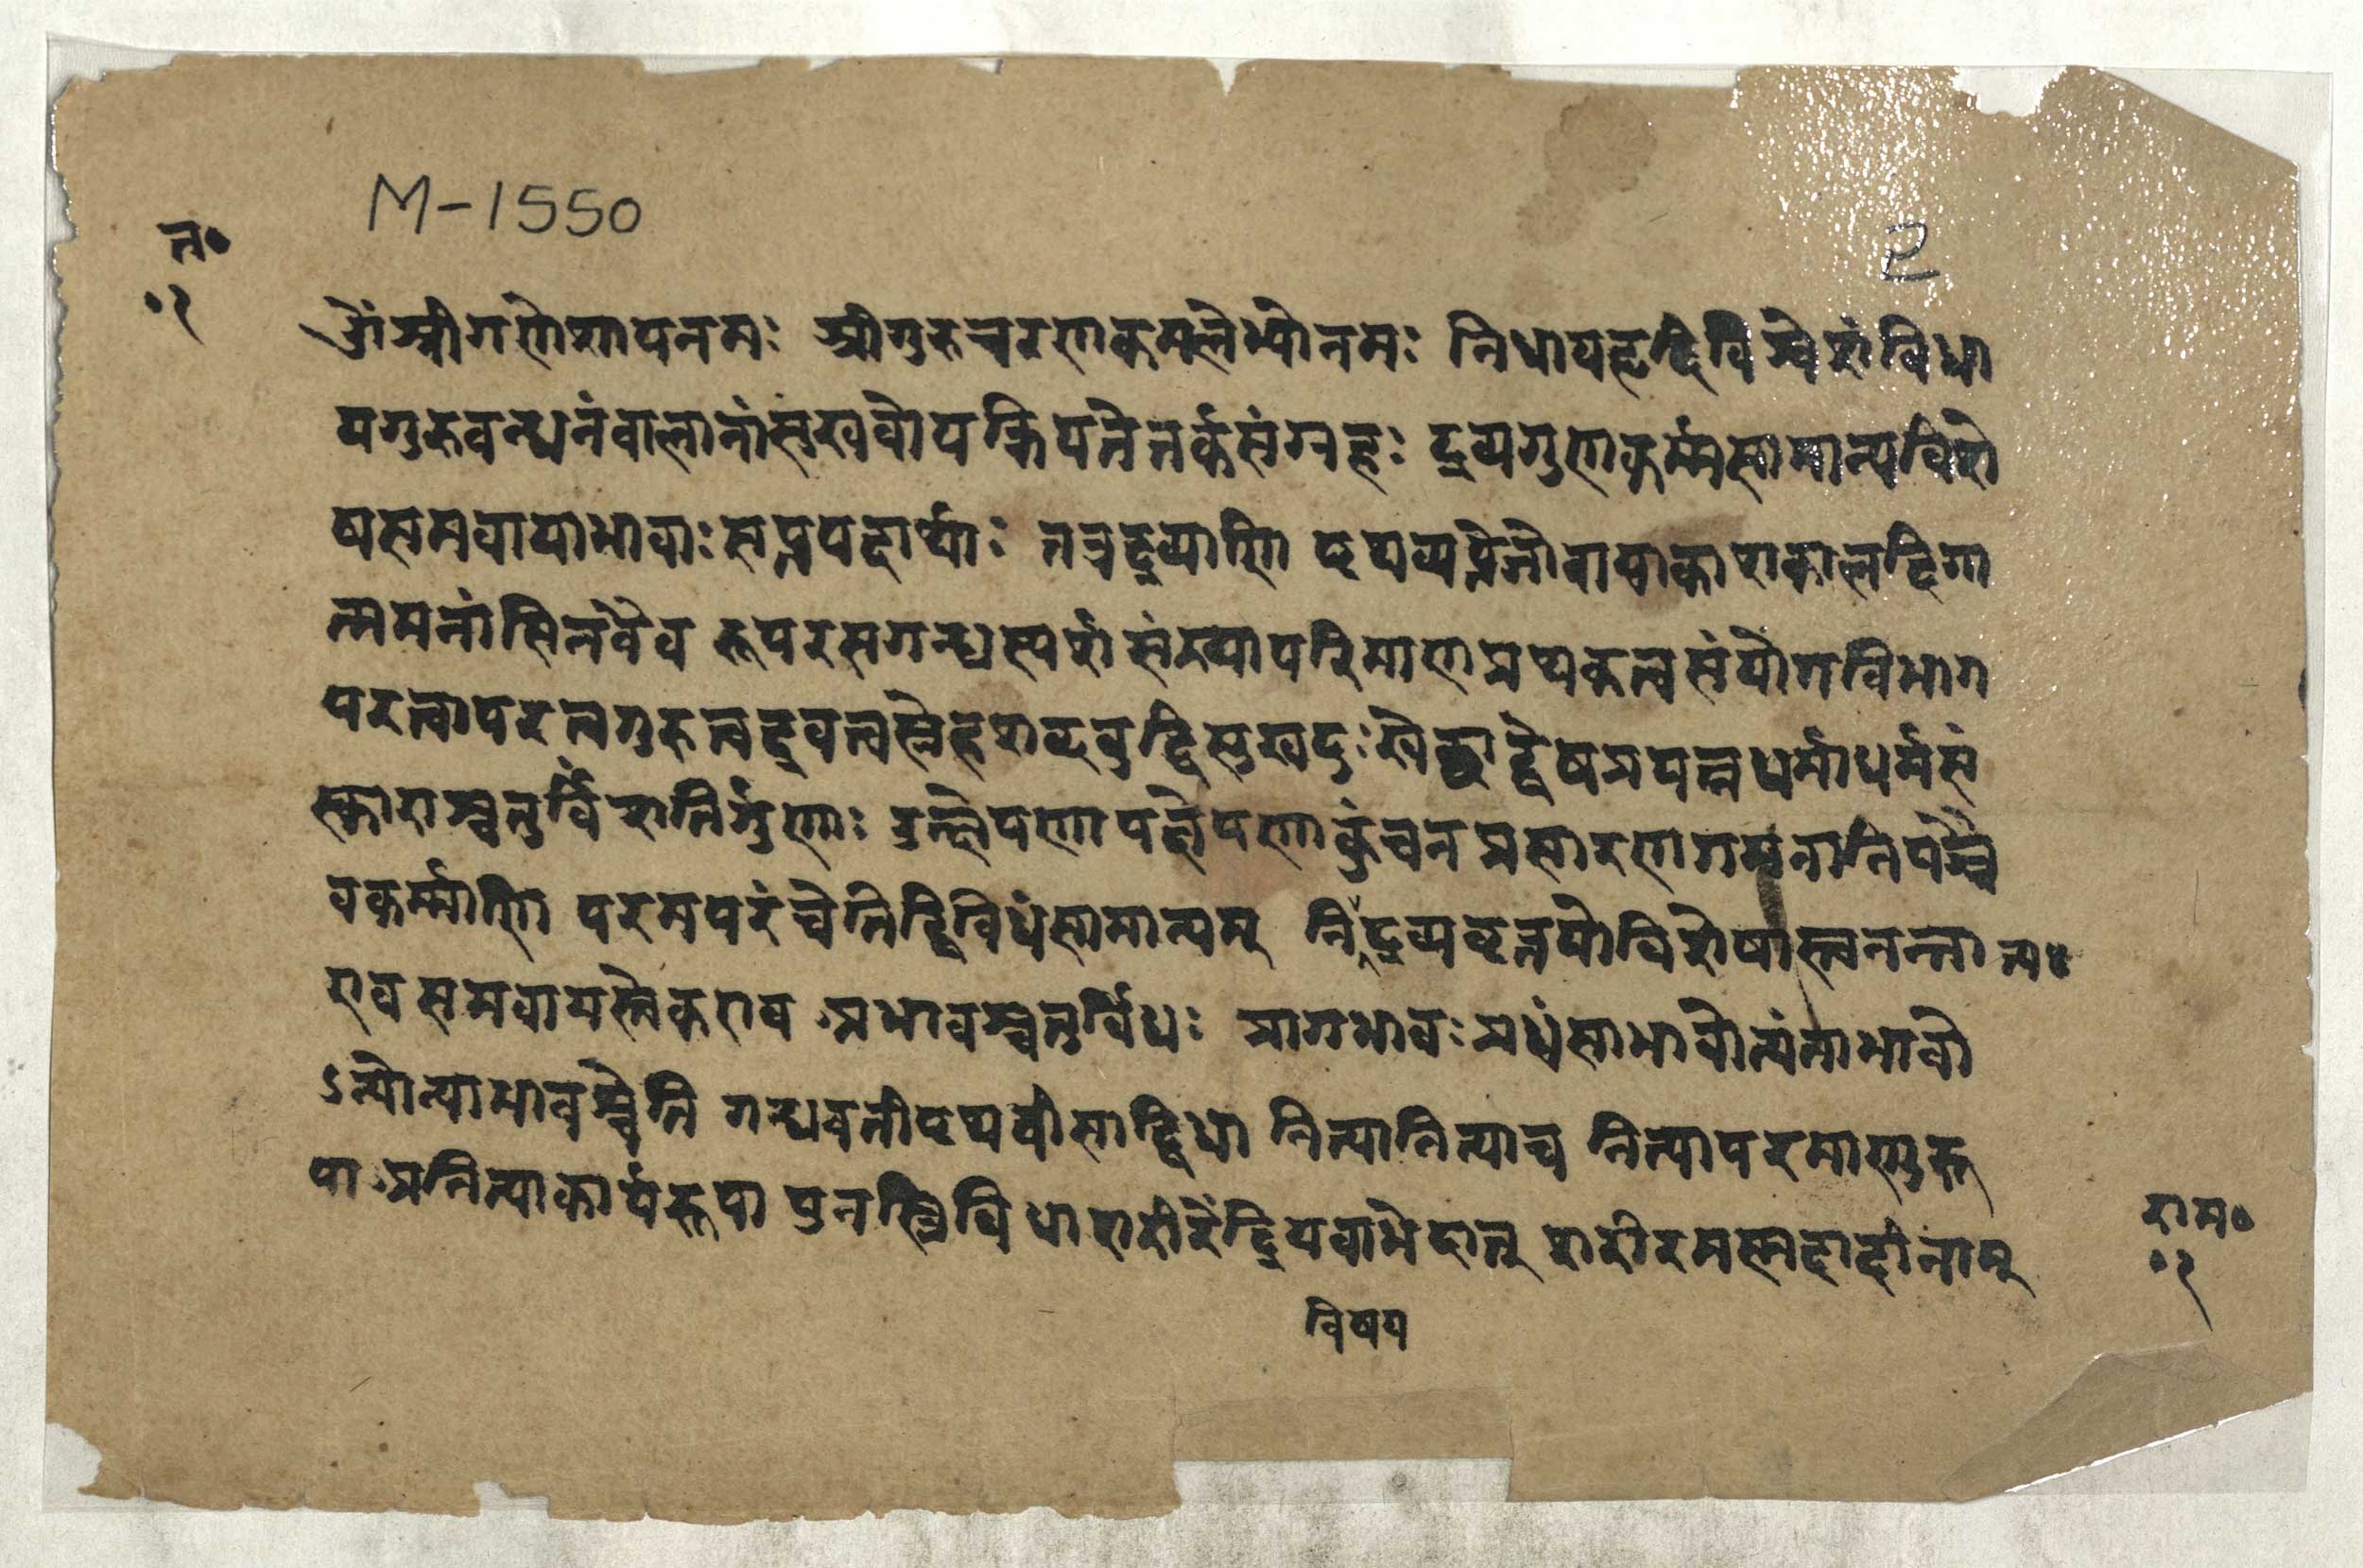 M-1550
२
त॰
१
ओंश्रीगणेशायनमः श्रीगुरुचरणकमलेभ्योनमः निधायहृदिविश्वेशंविधा
यगुरुवन्धनंवालानांसुखवोयक्रियतेतर्कसंग्रहः द्रव्यगुणकर्म्मसामान्यविशे
षसमवायाभावाःसप्तपदार्थाः तत्रद्रव्याणि पृथव्यप्तेजोवाय्वाकाशकालदिगा
त्ममनांसिनवैव रूपरसगन्धस्पर्शसंख्यापरिमाणप्रथकत्वसंयोगविभाग
परत्वापरत्वगुरुत्वद्रवत्वस्नेहशव्दवुद्धिसुखदुःखेच्छाद्वेषप्रयत्नधर्माधर्मसं
स्काराश्चतुर्विंशतिर्गुणाः उत्क्षेपणापक्षेपणाकुंचनप्रसारणगमनानिपंचै
वकर्म्माणि परमपरंचेतिद्विविधंसामान्यम् नित्यद्रव्यवृत्तयोविशेषास्त्वनन्ता
एव समवायस्त्वेकएव अभावश्चतुर्विधः प्रागभावःप्रध्वंसाभावोत्यंताभावो
ऽन्योन्याभावश्चेति गन्धवतीपृथवीसाद्विधा नित्यानित्याच नित्यापरमाणुरू
पा अनित्याकार्यरूपा पुनस्त्रिविधाशरीरेंद्रियवाभेदात् शरीरमस्मदादीनाम्
विषय
राम॰
१